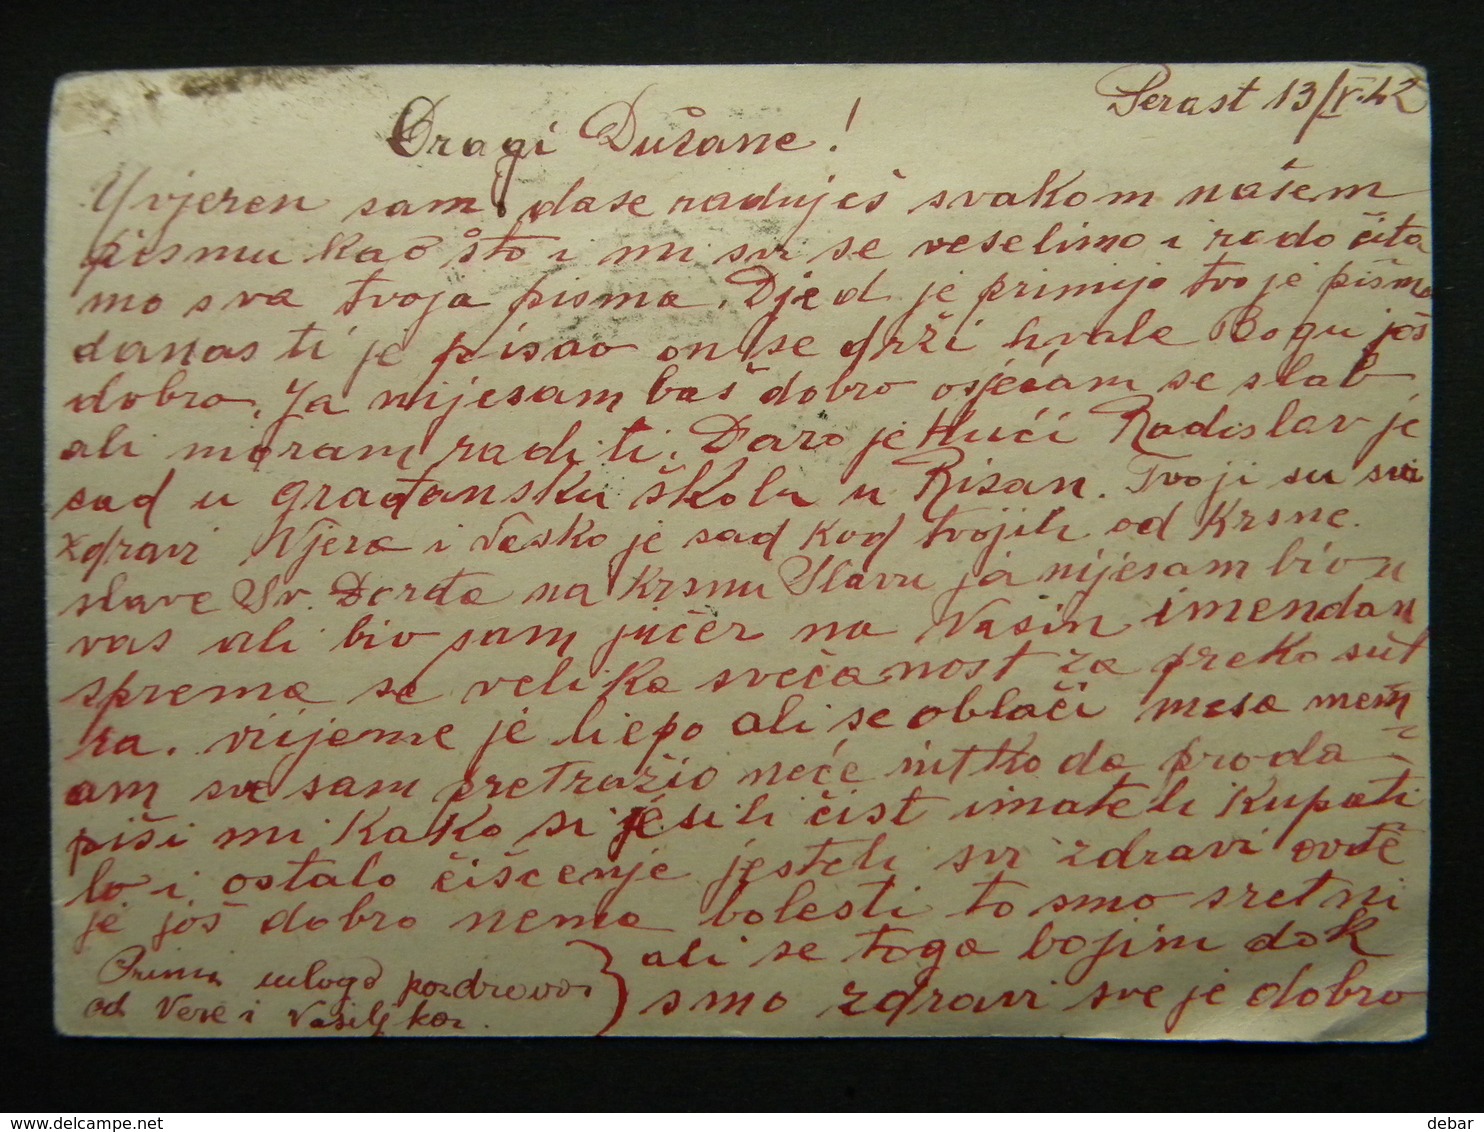 Perast 13/V.42
Dragi Dušane!
Uvjeren sam, dase raduješ svakom našem
pismu kao što i mi svi se veselimo i rado čita
mo sva tvoja pisma. Djed je primijo tvoje pismo
danas ti je pisao on se drži hvale Bogu još
dobro. Ja nijesam baš dobro osjećam se slab
ali moram raditi. Daro je kući Radislav je
sad u građansku školu u Risan. Tvoji su svi
zdravi Vjera i Vasko je sad kod tvojih od Krsne
slave Sv. Đorđa na Krsnu Slavu ja nijesam bio u
vas ali bio sam jučer na Vasin imendan
sprema se velika svečanost za preko sut
ra. vrijeme je liepo ali se oblači mesa nem
am sve sam pretražio neće nitko da proda
piši mi kako si jesili čist imateli kupati
lo i ostalo čišćenje jesteli svi zdravi ovđe
je još dobro nema bolesti to smo sretni
ali se toga bojim dok
smo zdravi sve je dobro
Primi mlogo pozdrova
od Vere i Vasiljka.
delcampe.net
debar